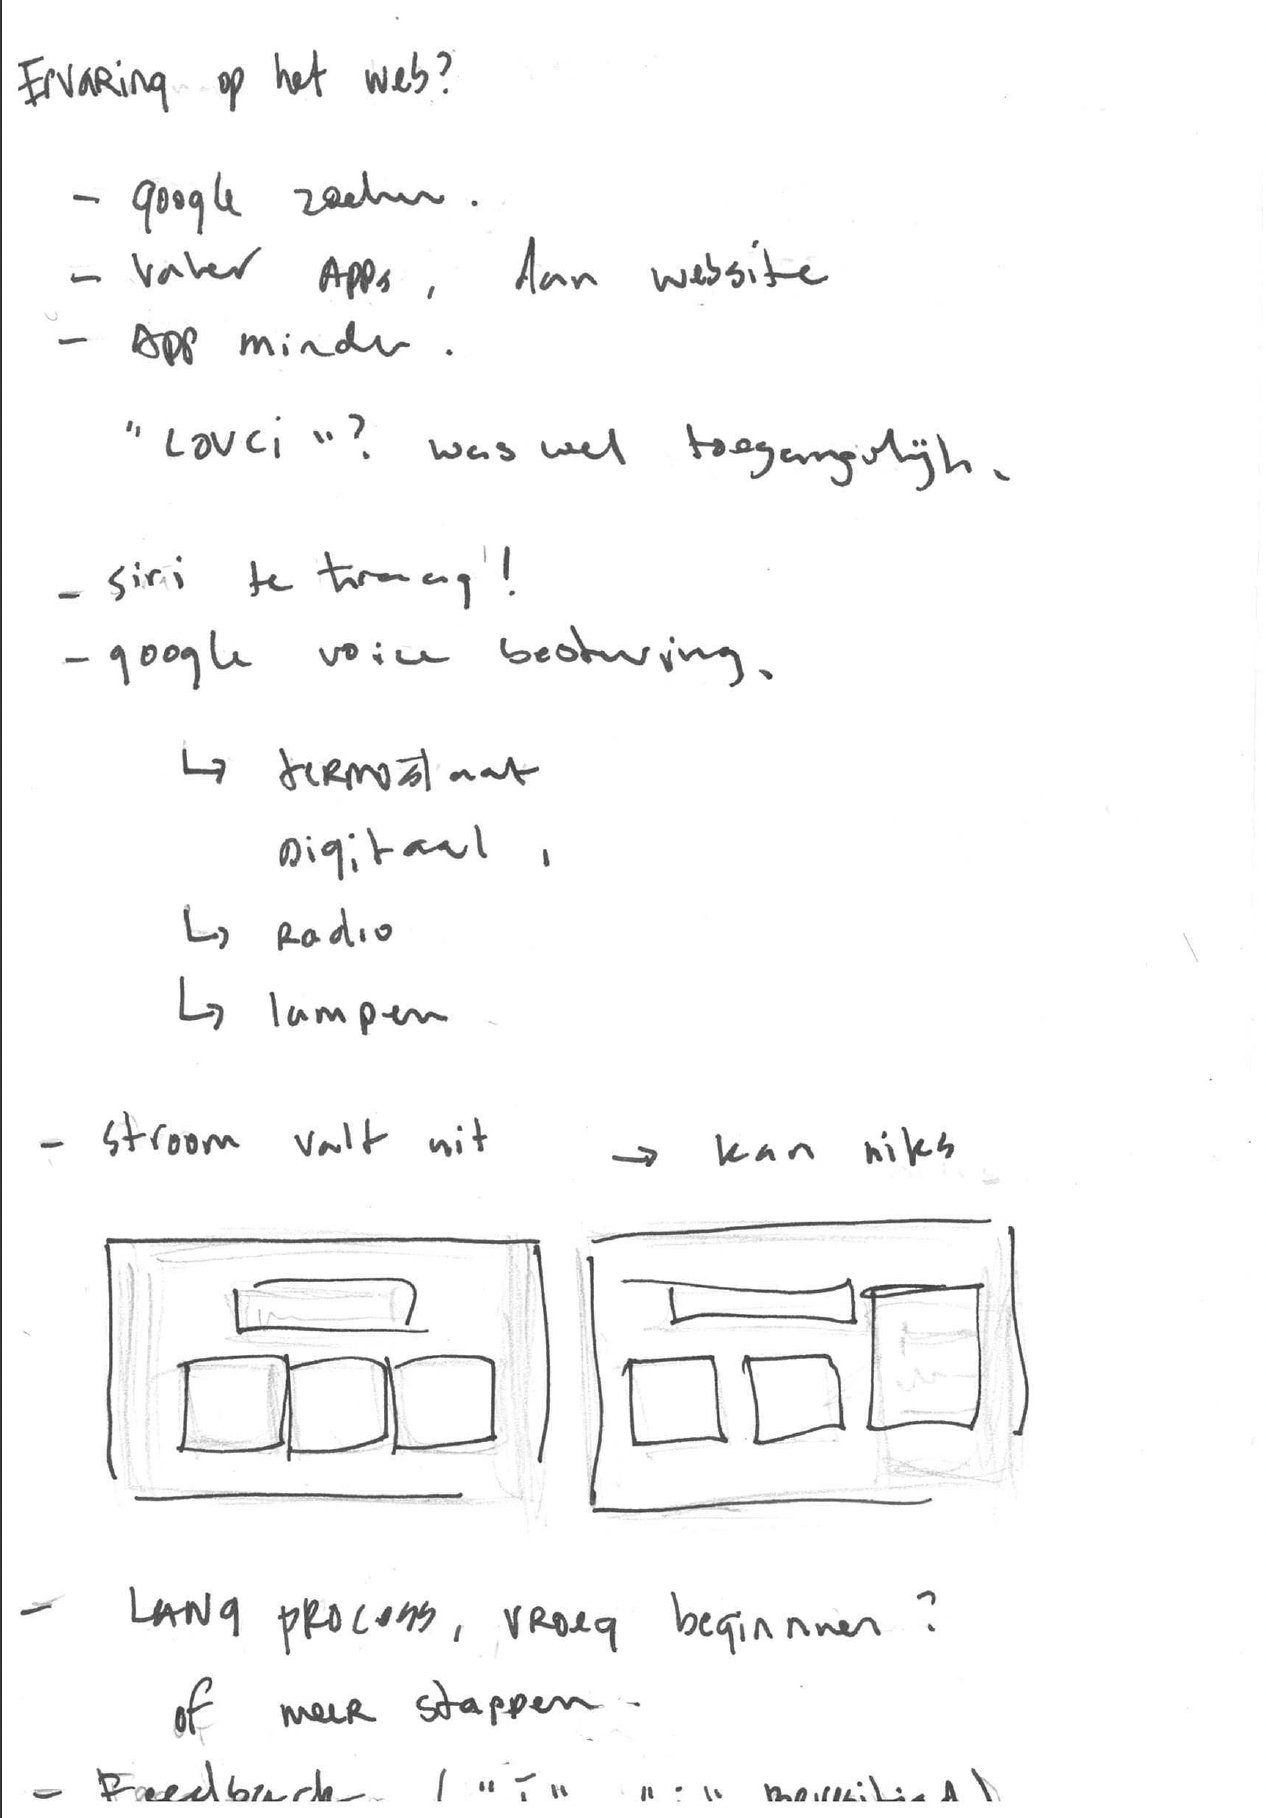 Ervaring op het web?
- google zoeken.
- vaker Apps, dan website
- App minder.
"Lovci"? was wel toegangelijk.
- siri te traag!
- google voice besturing.
↳ termostaat
digitaal,
↳ Radio
↳ lampen
- stroom valt uit → kan niks
- Lang process, vroeg beginnnen?
of meer stappen.
- Feedback